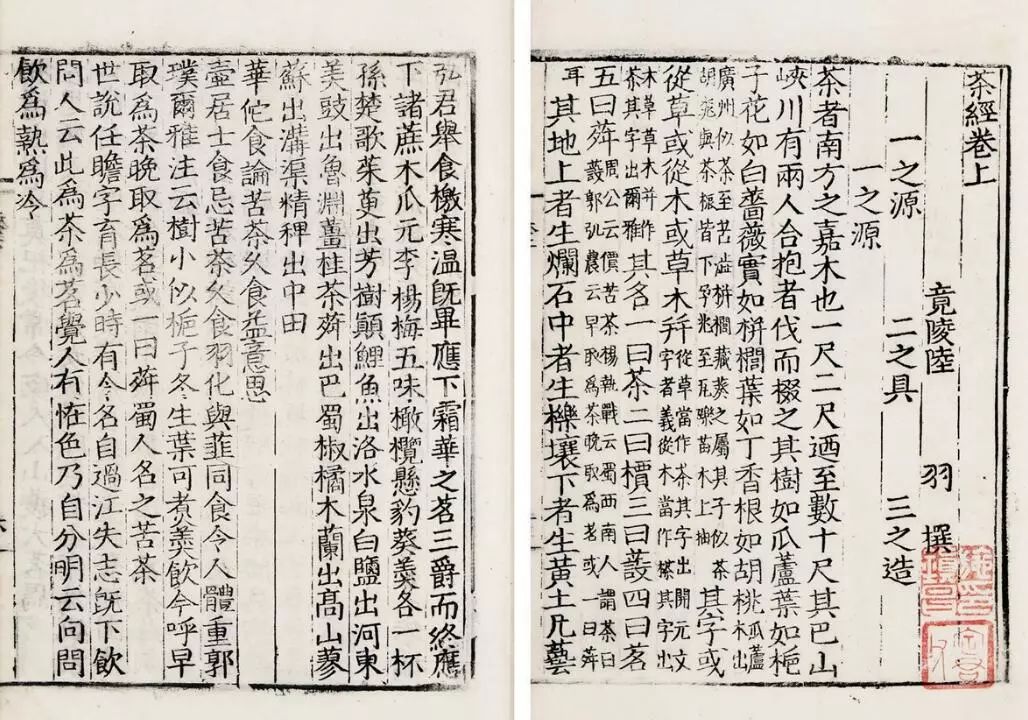 茶經卷上
竟陵陸 羽 撰
一之源 二之具 三之造
一之源
茶者南方之嘉木也一尺二尺迺至數十尺其巴山
峽川有兩人合抱者伐而掇之其樹如瓜蘆葉如梔
子花如白薔薇實如栟櫚葉如丁香根如胡桃瓜蘆木出
廣州似茶至苦澁栟櫚藏葵之屬其子似茶胡桃與茶根皆下孕兆至瓦礫苗木上抽其字或
從草或從木或草木并從草當作茶其字出開元文字者義從木當作其字出
木草草木并作茶其字出爾雅其名一曰茶二曰檟三曰蔎四曰茗
五曰荈周公云價苦茶楊執戟云蜀西南人謂茶曰蔎郭弘農云早取爲茶晚取爲老或一曰荈
耳其地上者生爛石中者生櫟壤下者生黃土凡藝
弘君舉食檄寒溫旣畢應下霜華之茗三爵而終應
下諸蔗木瓜元李楊梅五味橄欖懸豹葵羹各一杯
孫楚歌茱萸出芳樹顚鯉魚出洛水泉白鹽出河東
美豉出魯淵薑桂茶荈出巴蜀椒橘木蘭出高山蓼
蘇出溝渠精稗出中田
華佗食論苦茶久食益意思
壺居士食忌苦茶久食羽化與韮同食令人體重郭
璞爾雅注云樹小似梔子冬生葉可煮羹飲今呼早
取爲茶晚取爲茗或一曰荈蜀人名之苦茶
世說任瞻字育長少時有令名自過江失志旣下飲
問人云此爲茶爲茗覺人有恠色乃自分明云向問
飲爲熱爲冷